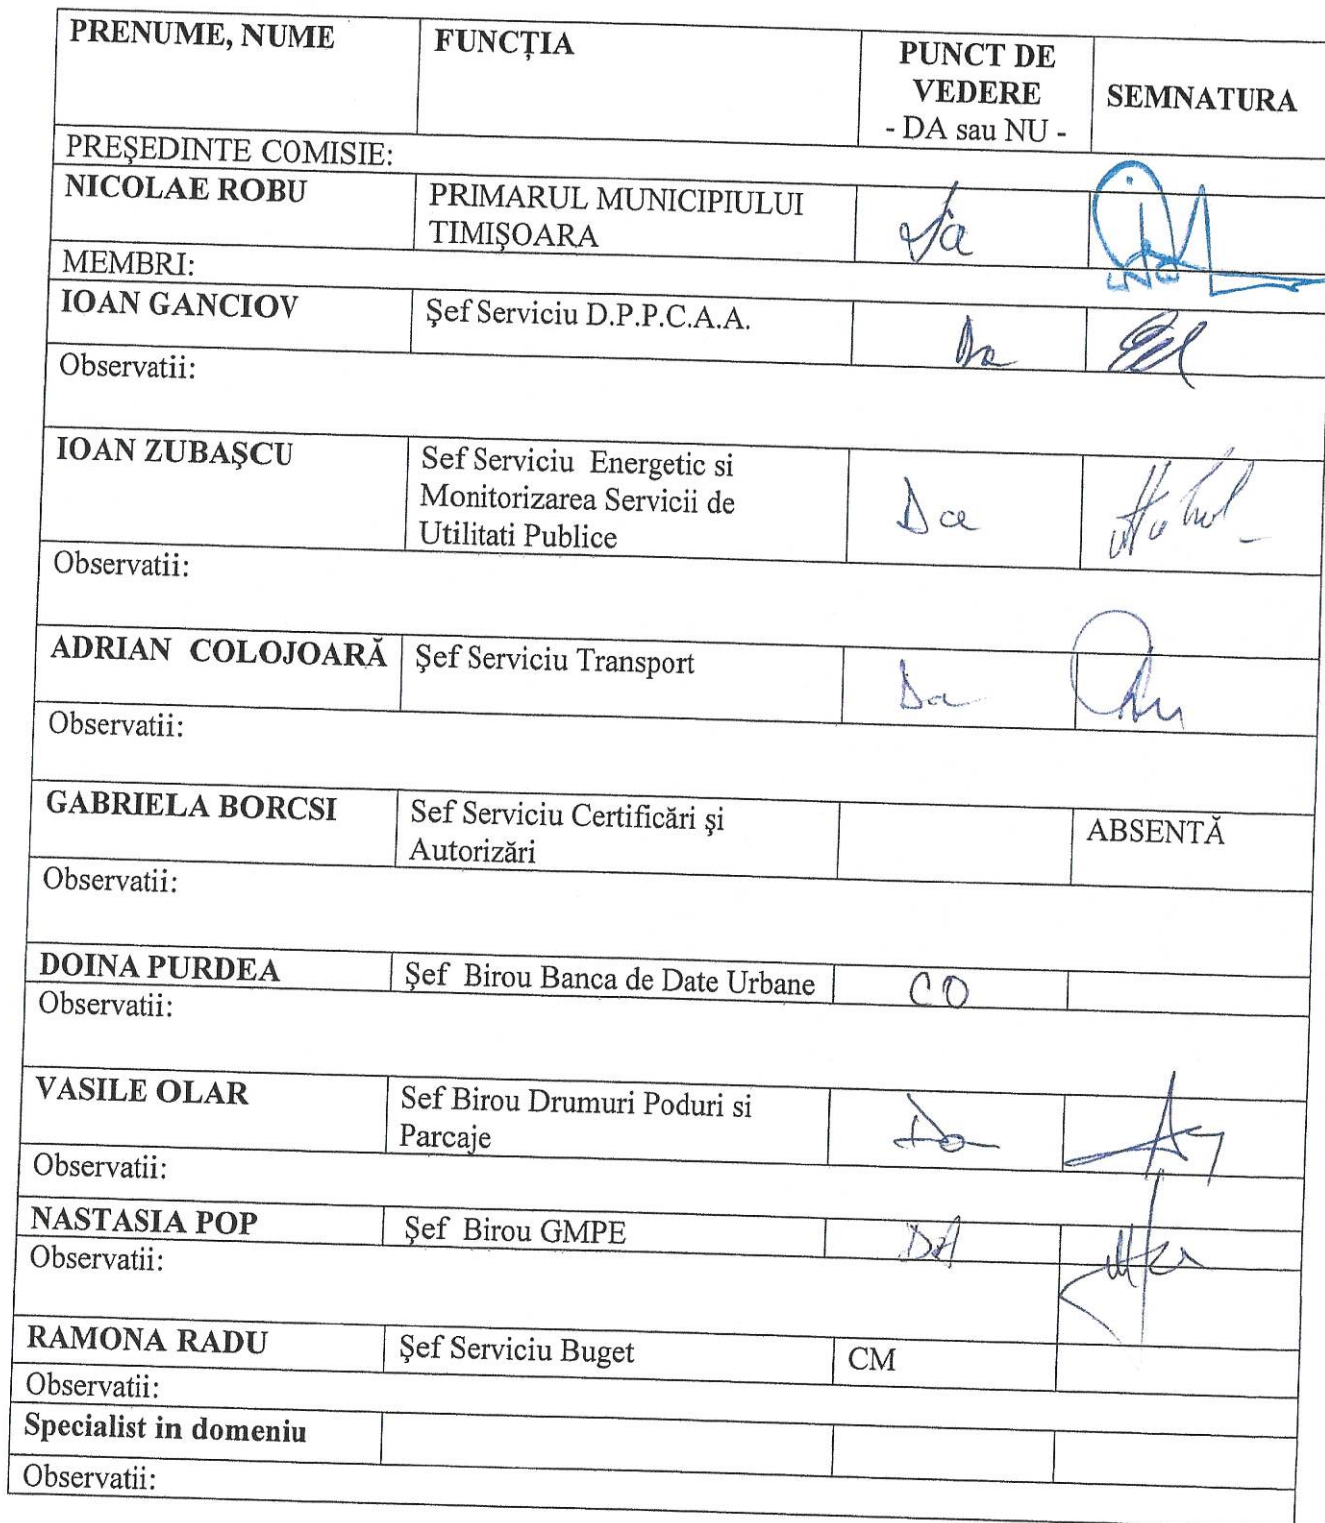 PRENUME, NUME
FUNCȚIA
PUNCT DE
VEDERE
- DA sau NU -
SEMNATURA
PREŞEDINTE COMISIE:
NICOLAE ROBU
PRIMARUL MUNICIPIULUI
TIMIŞOARA
Da
MEMBRI:
IOAN GANCIOV
Şef Serviciu D.P.P.C.A.A.
Da
Observatii:
IOAN ZUBAŞCU
Sef Serviciu Energetic si
Monitorizarea Servicii de
Utilitati Publice
Da
Observatii:
ADRIAN COLOJOARĂ
Şef Serviciu Transport
Da
Observatii:
GABRIELA BORCSI
Sef Serviciu Certificări şi
Autorizări
ABSENTĂ
Observatii:
DOINA PURDEA
Şef Birou Banca de Date Urbane
CO
Observatii:
VASILE OLAR
Sef Birou Drumuri Poduri si
Parcaje
Da
Observatii:
NASTASIA POP
Şef Birou GMPE
DA
Observatii:
RAMONA RADU
Şef Serviciu Buget
CM
Observatii:
Specialist in domeniu
Observatii: